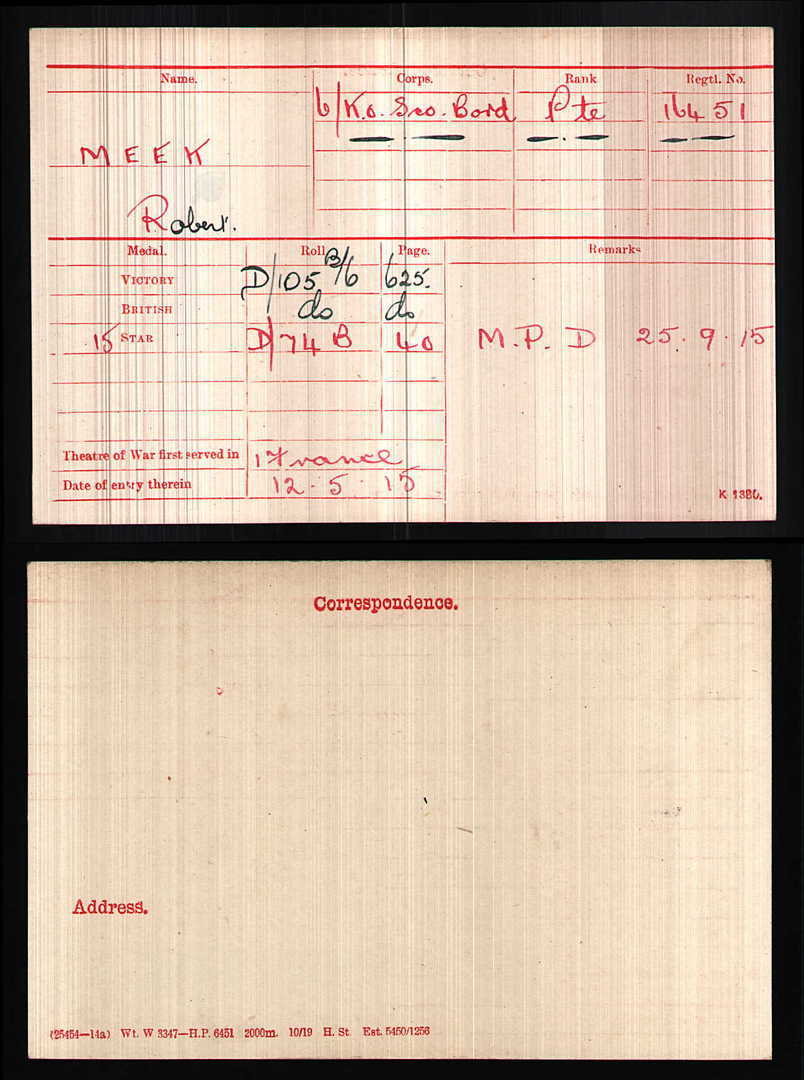 Name. Corps. Rank Regtl. No.
6/K.O. Sco. Bord Pte 16451
MEEK
Robert.
Medal. Roll Page. Remarks
VICTORY D/105 B/6 625.
BRITISH do do
15 STAR D/74 B 40 M.P.D 25.9.15
Theatre of War first served in 1 France
Date of entry therein 12.5.15
K 1380.
Correspondence.
Address.
(25454—14a) Wt. W 3347—H.P. 6451 2000m. 10/19 H. St. Est. 5450/1256